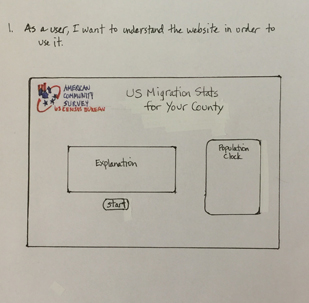 1. As a user, I want to understand the website in order to
use it.
AMERICAN
COMMUNITY
SURVEY
US CENSUS BUREAU
US Migration Stats
for Your County
Explanation
Population
Clock
Start